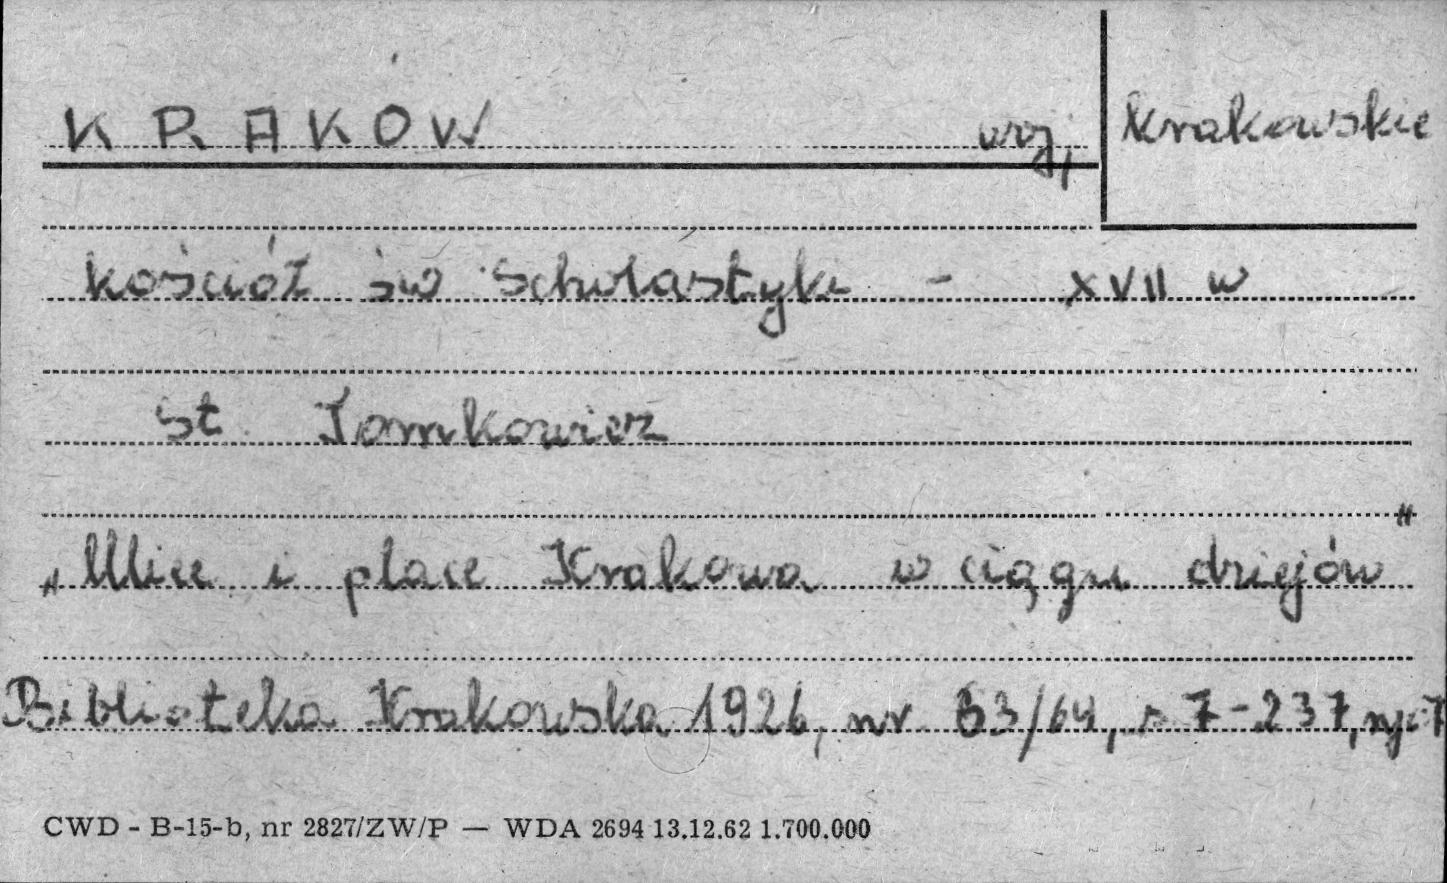 KRAKÓW woj, krakowskie
kościół św Scholastyki - XVII w
St. Tomkowicz
„Ulice i place Krakowa w ciągu dziejów"
Biblioteka Krakowska 1926, nr 63/64, s 7-237,
CWD - B-15-b, nr 2827/ZW/P — WDA 2694 13.12.62 1.700.000